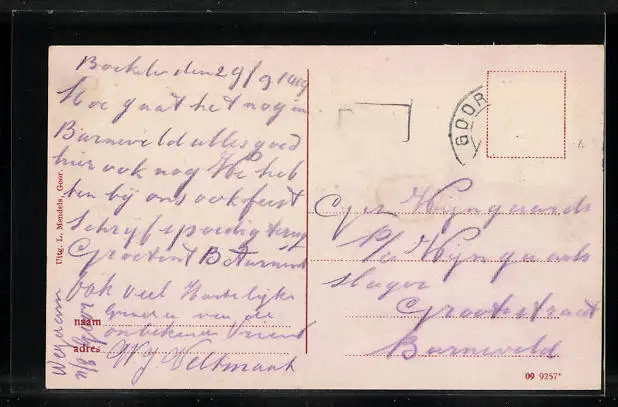 Boekelo den 29/9 1919
Hoe gaat het nog in
Barneveld alles goed
hier ook nog We heb
ben bij ons ook feest
Schrijf spoedig terug
Groetent B
ook veel Hartelijke
Groeten van de
onbekende Vriend
W J Veltmaat
naam
adres
Uitg. L. Mendels, Goor.
GOOR
Wijngaards
p/a Wijngaards
slager
Grootestraat
Barneveld
09 9257*